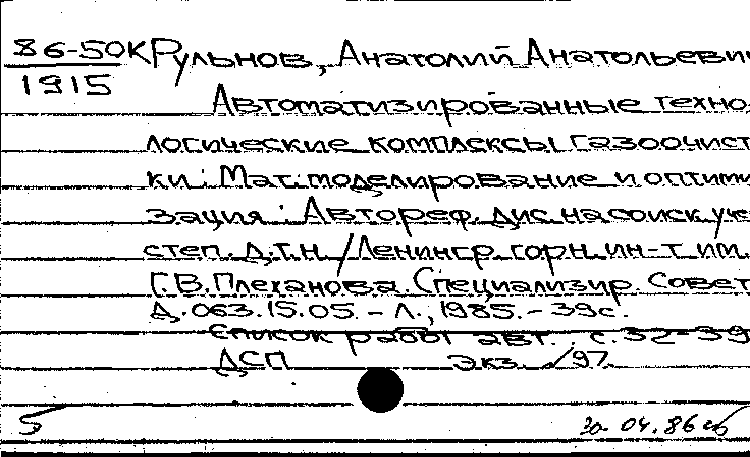 86-50К Рульнов, Анатолий Анатольеви
1915
Автоматизированные техно
логические комплексы газоочист
ки : Мат. моделирование и оптими
зация : Автореф. дис. на соиск. уче
степ. д.т.н. / Ленингр. горн. ин-т им.
Г.В. Плеханова. Специализир. совет
Д. 063.15.05. - Л., 1985. - 39с.
Список работ авт.: с. 32-39
ДСП Экз. /97.
5 04.86